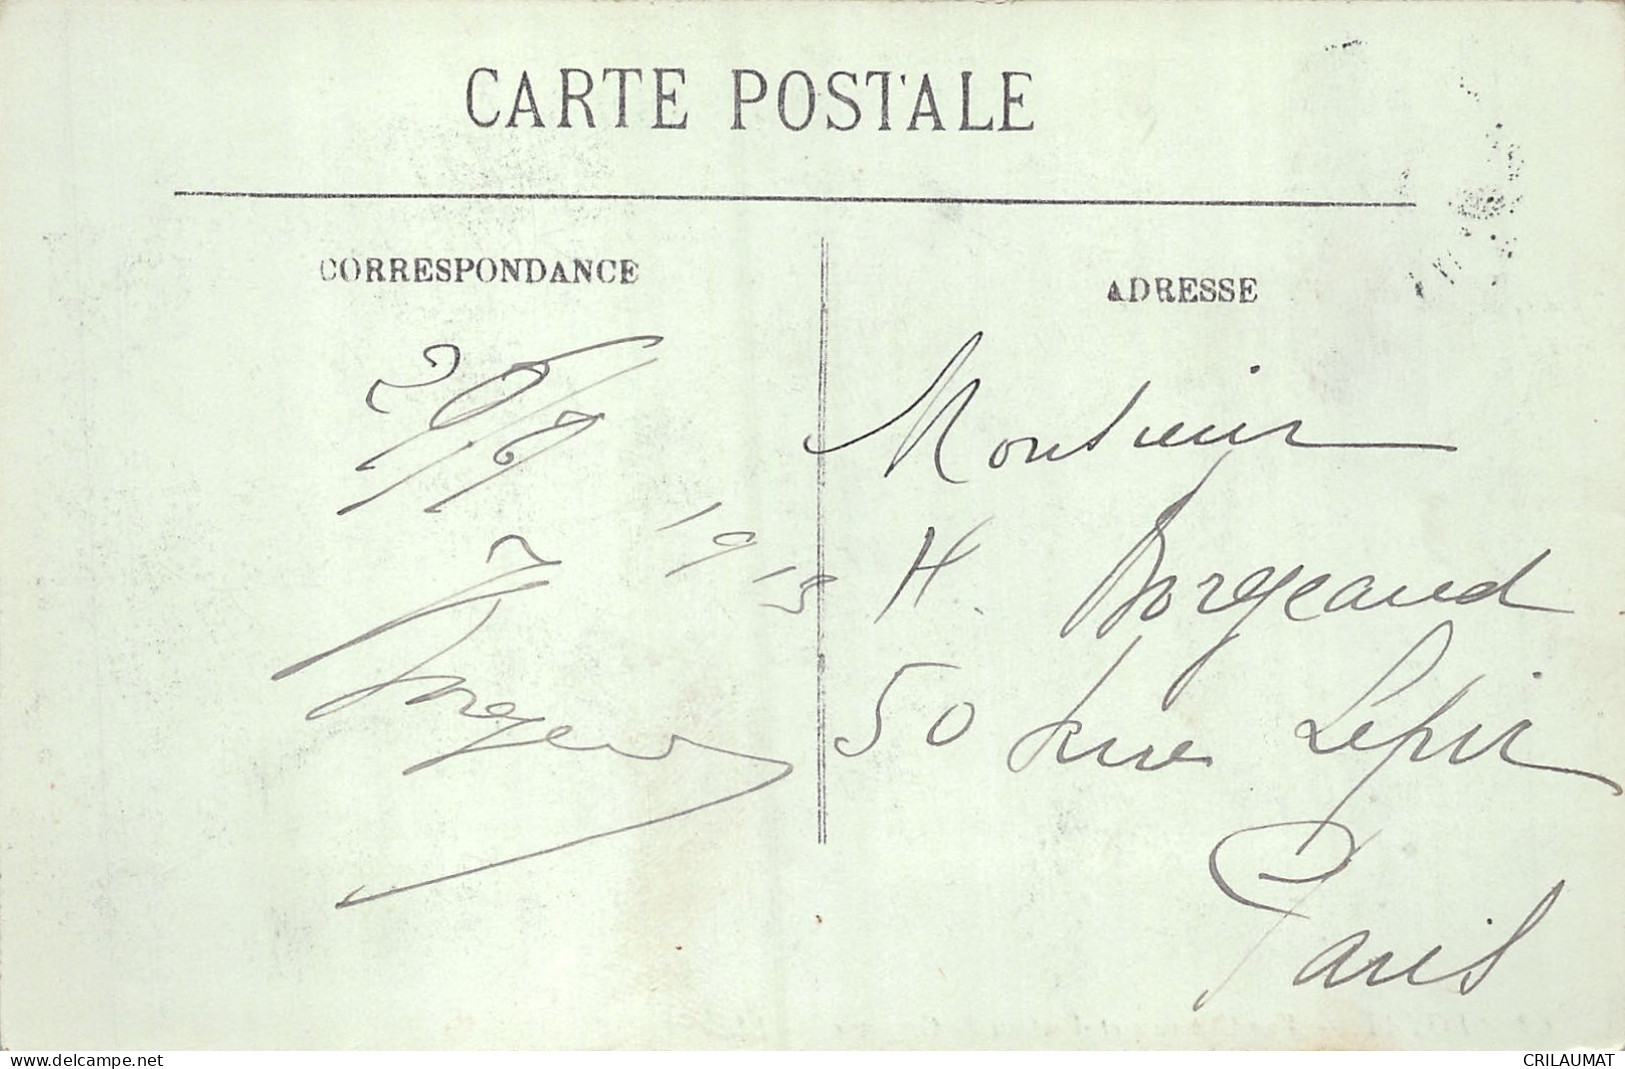 CARTE POSTALE
CORRESPONDANCE
1913
ADRESSE
Monsieur
H. Borgeaud
50 rue Lepic
Paris
www.delcampe.net
CRILAUMAT